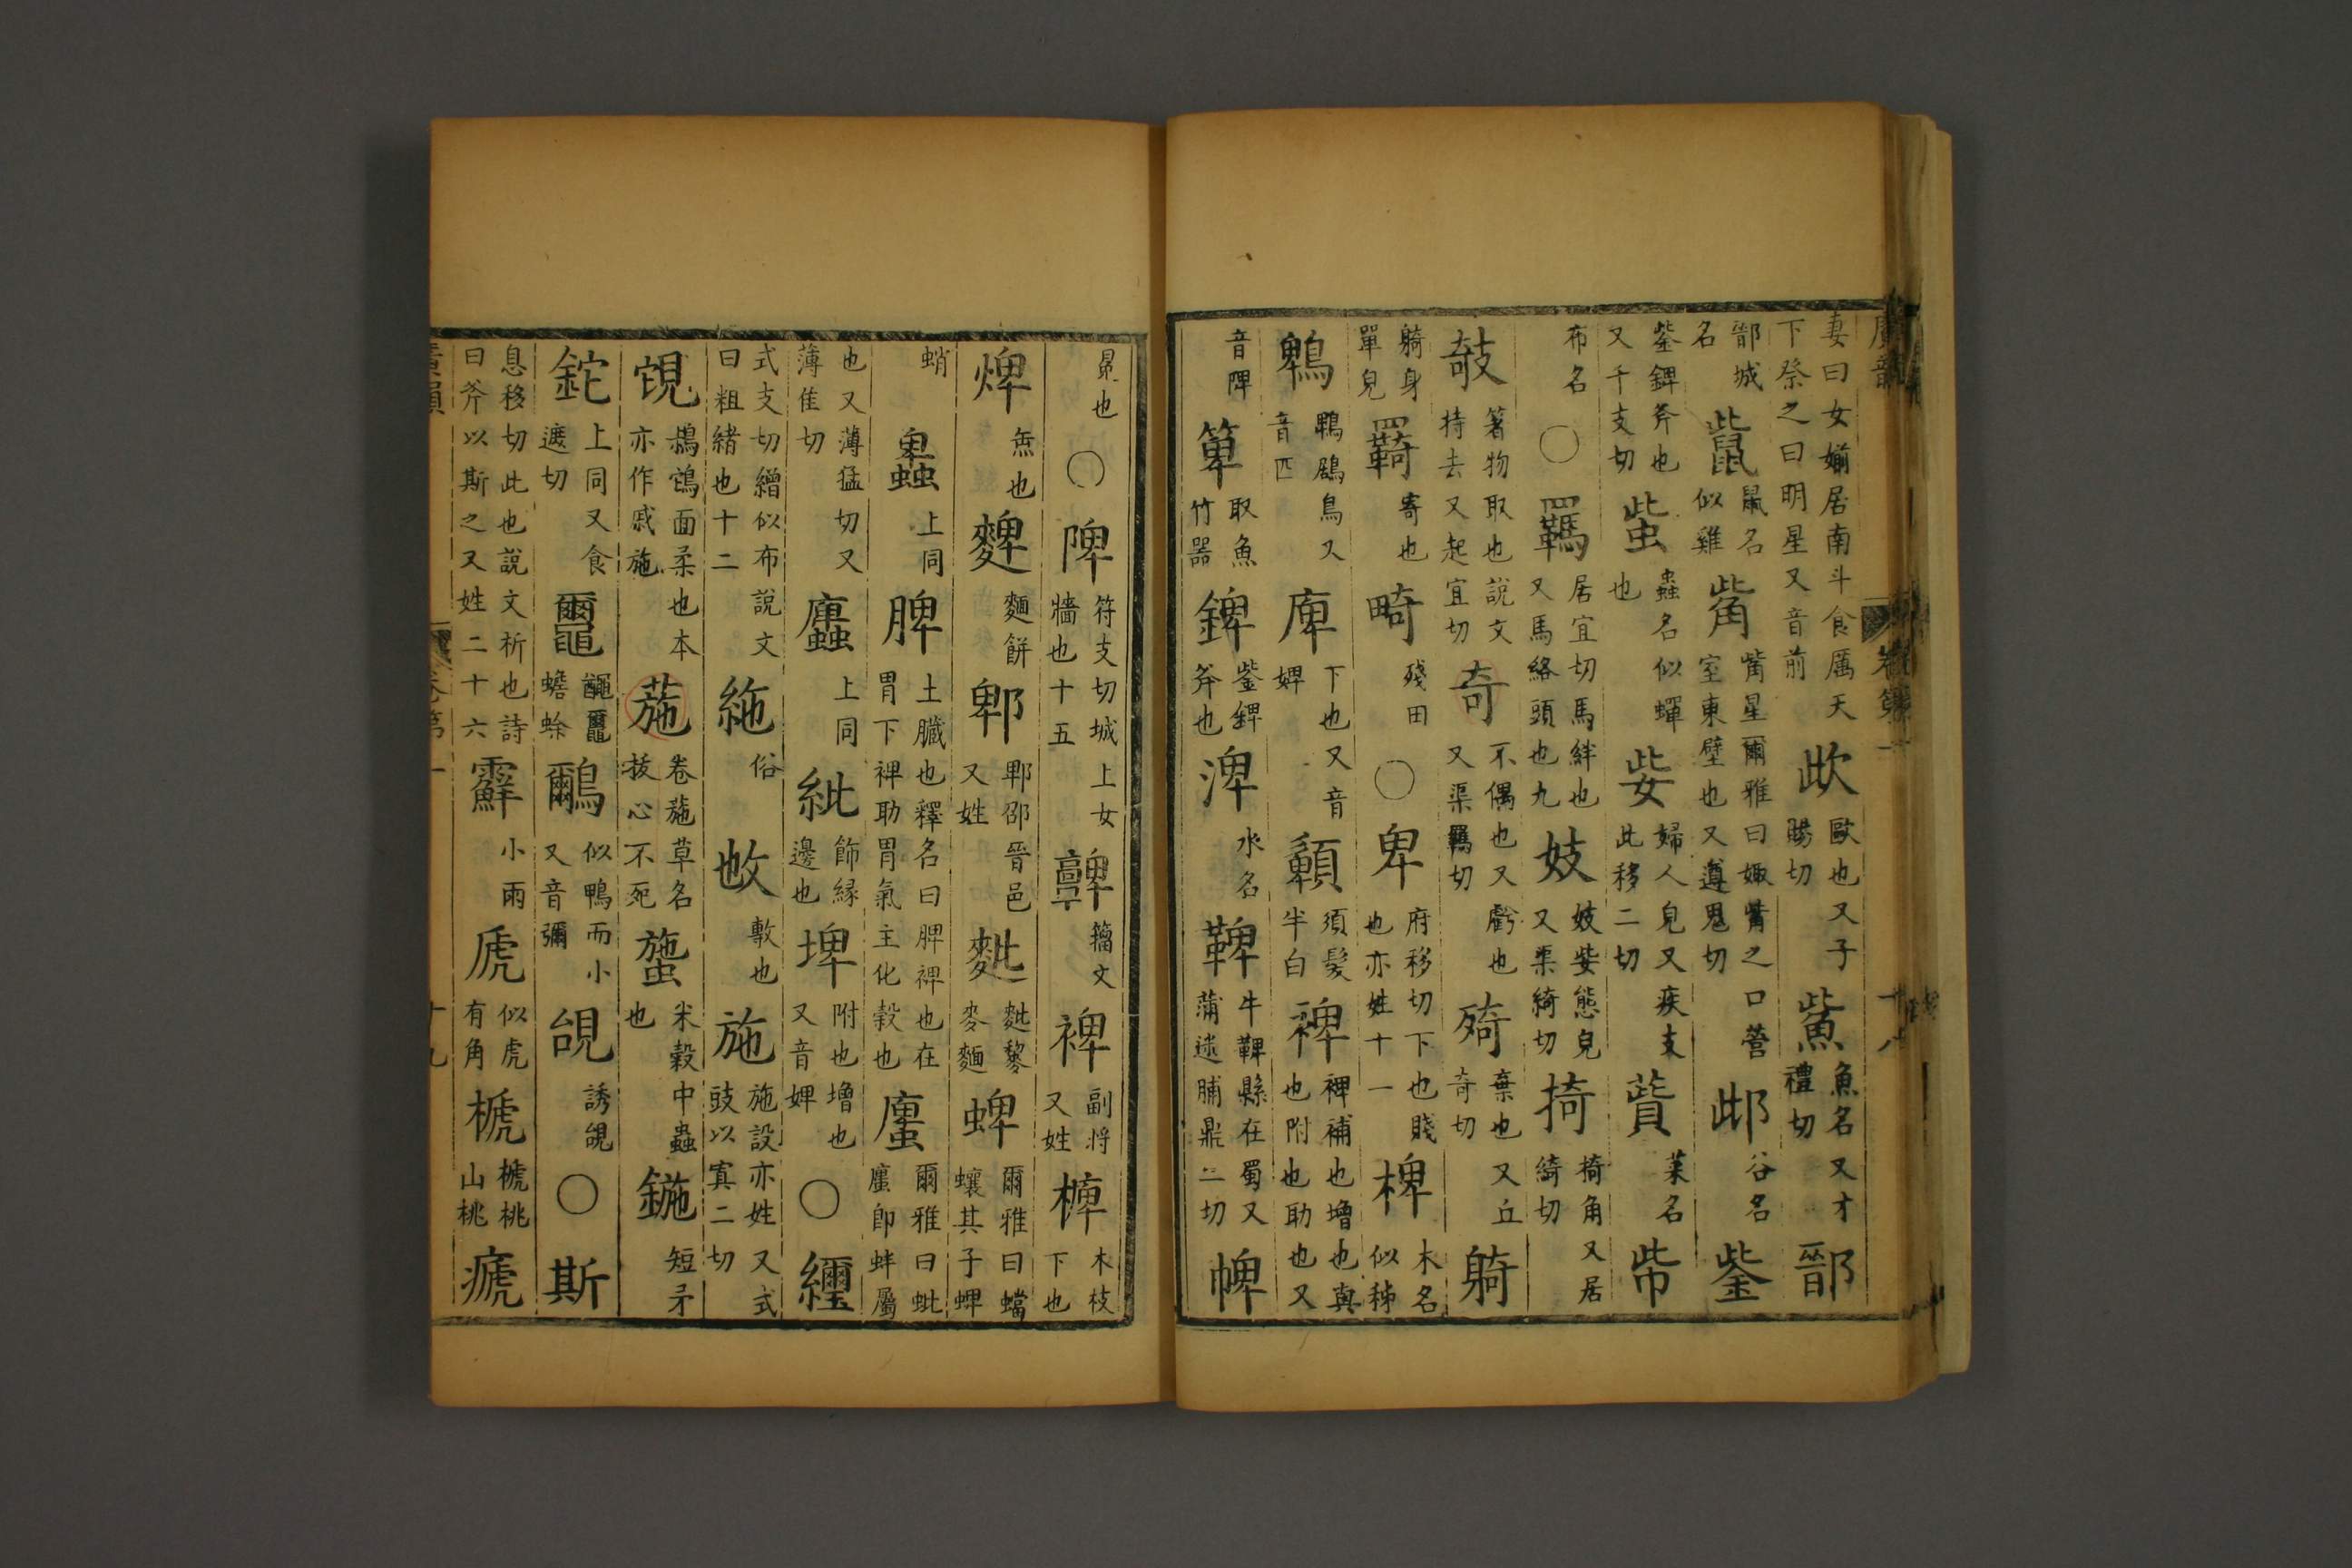 廣韻
卷第一
十八
妻曰女媊居南斗食厲天下祭之曰明星又音前 㰣 歐也又子賜切 鮆 魚名又才禮切 鄑
鄑城名 鼣 鼠名似雞 觜 觜星爾雅曰娵觜之口營室東壁也又遵思切 𨚖 谷名 鈭
鈭錍斧也又千支切 䖪 蟲名似蟬也 姕 婦人皃又疾支此移二切 䔺 菜名 㧘
布名 ○ 羈 居宜切馬絆也又馬絡頭也九 妓 妓姕態皃又渠綺切 掎 掎角又居綺切
攲 箸物取也說文持去又起宜切 奇 不偶也又虧也又渠羈切 㱦 棄也又丘奇切 躸
躸身單皃 羇 寄也 畸 殘田 ○ 卑 府移切下也賤也亦姓十一 椑 木名似柹
鵯 鵯鶋鳥又音匹 庳 下也又音婢 䫌 須髮半白 裨 裨補也增也與也附也助也又
音陴 箄 取魚竹器 錍 鈭錍斧也 渒 水名 鞞 牛鞞縣在蜀又蒲迷脯鼎二切 㡙
冕也 ○ 陴 符支切城上女牆也十五 𩫫 籀文 裨 副將又姓 㯅 木枝下也
焷 缹也 䴽 麵餅 郫 郫邵晉邑又姓 䴡 䴡䴢麥麵 蜱 爾雅曰蟷蠰其子蜱
蛸 蠯 上同 脾 土臟也釋名曰脾裨也在胃下裨助胃氣主化穀也 螷 爾雅曰蚍螷即蚌屬
也又薄猛切又薄佳切 蠯 上同 紕 飾緣邊也 埤 附也增也又音婢 ○ 纚
式支切繒似布說文曰粗緒也十二 絁 俗 𢻱 敷也 施 施設亦姓又式豉以寘二切
䙾 鵱䳓面柔也本亦作戚施 葹 卷葹草名拔心不死 䗐 米穀中蟲也 鍦 短矛
鉈 上同又食遮切 䵹 䵶䵹蟾蜍 鸍 似鴨而小又音彌 䚳 誘䚳 ○ 斯
息移切此也說文析也詩曰斧以斯之又姓二十六 䨛 小雨 虒 似虎有角 榹 榹桃山桃 㾷
卷第一
十九